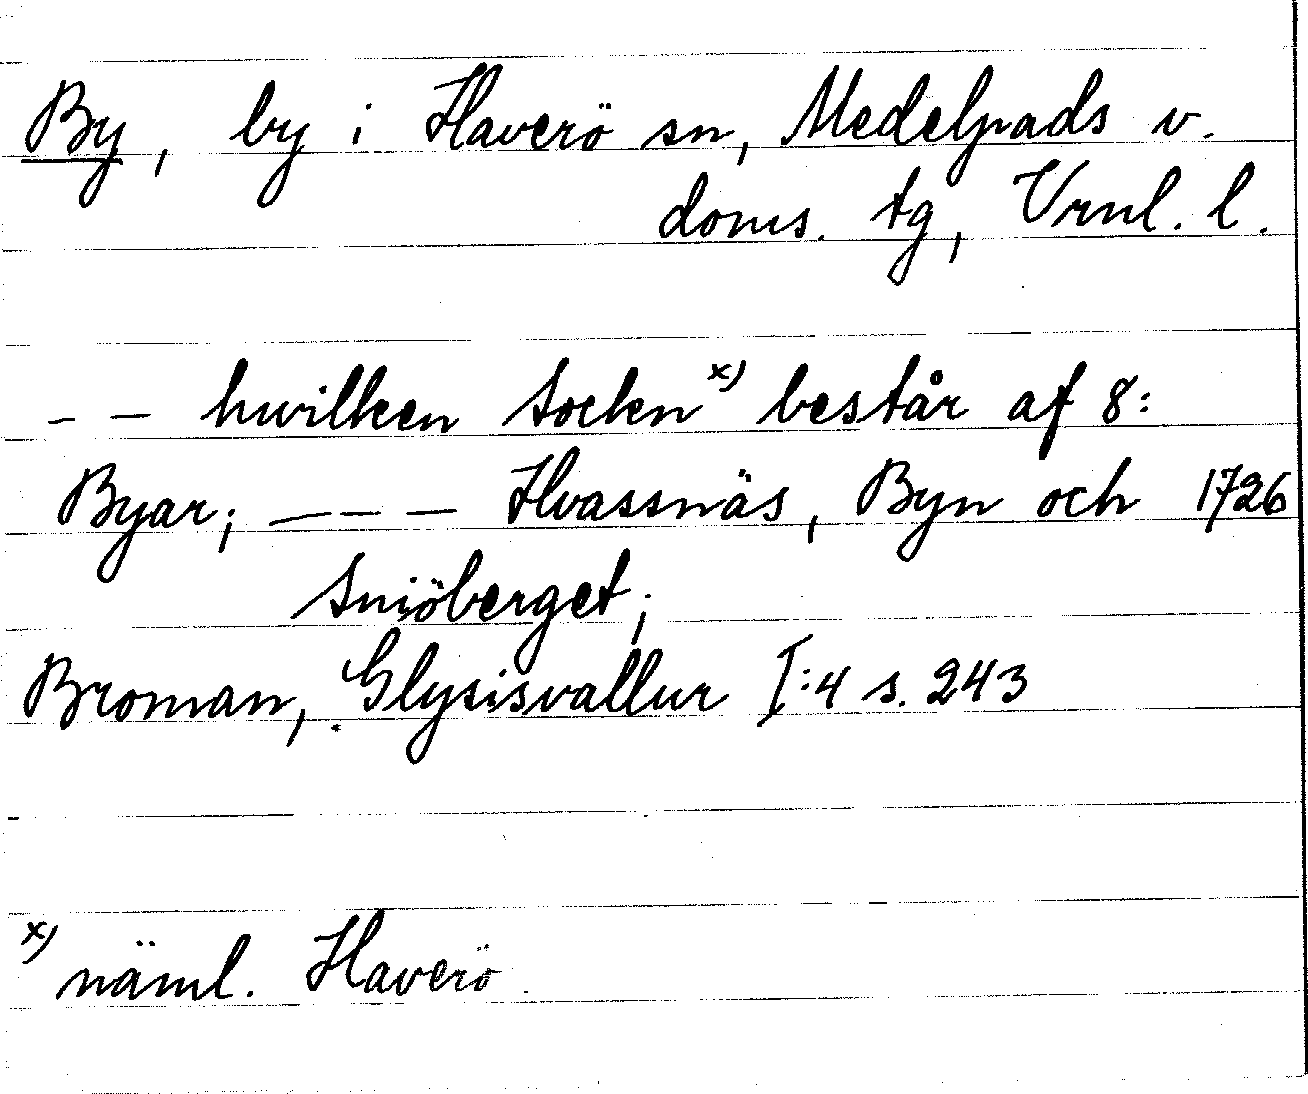 By, by i Haverö sn, Medelpads v.
doms. tg, Vrnl. l.
- - hwilken Sockn x) består af 8:
Byar; - - - Hvassnäs, Byn och 1726
Sniöberget;
Broman, Glysisvallur I:4 s. 243
x) näml. Haverö.